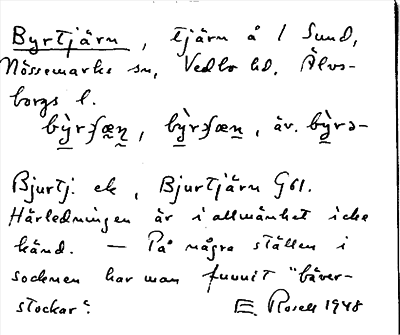 Byrtjärn, tjärn å 1 Sund,
Nössemarks sn, Vedbo hd, Älvs-
borgs l.
bỳrʃæn, bỳrʃæn, äv. bỳrə-
Bjurtj. ek, Bjurtjärn G61.
Härledningen är i allmänhet icke
känd. — På några ställen i
socknen har man funnit "bäver-
stockar".
E. Rosell 1948